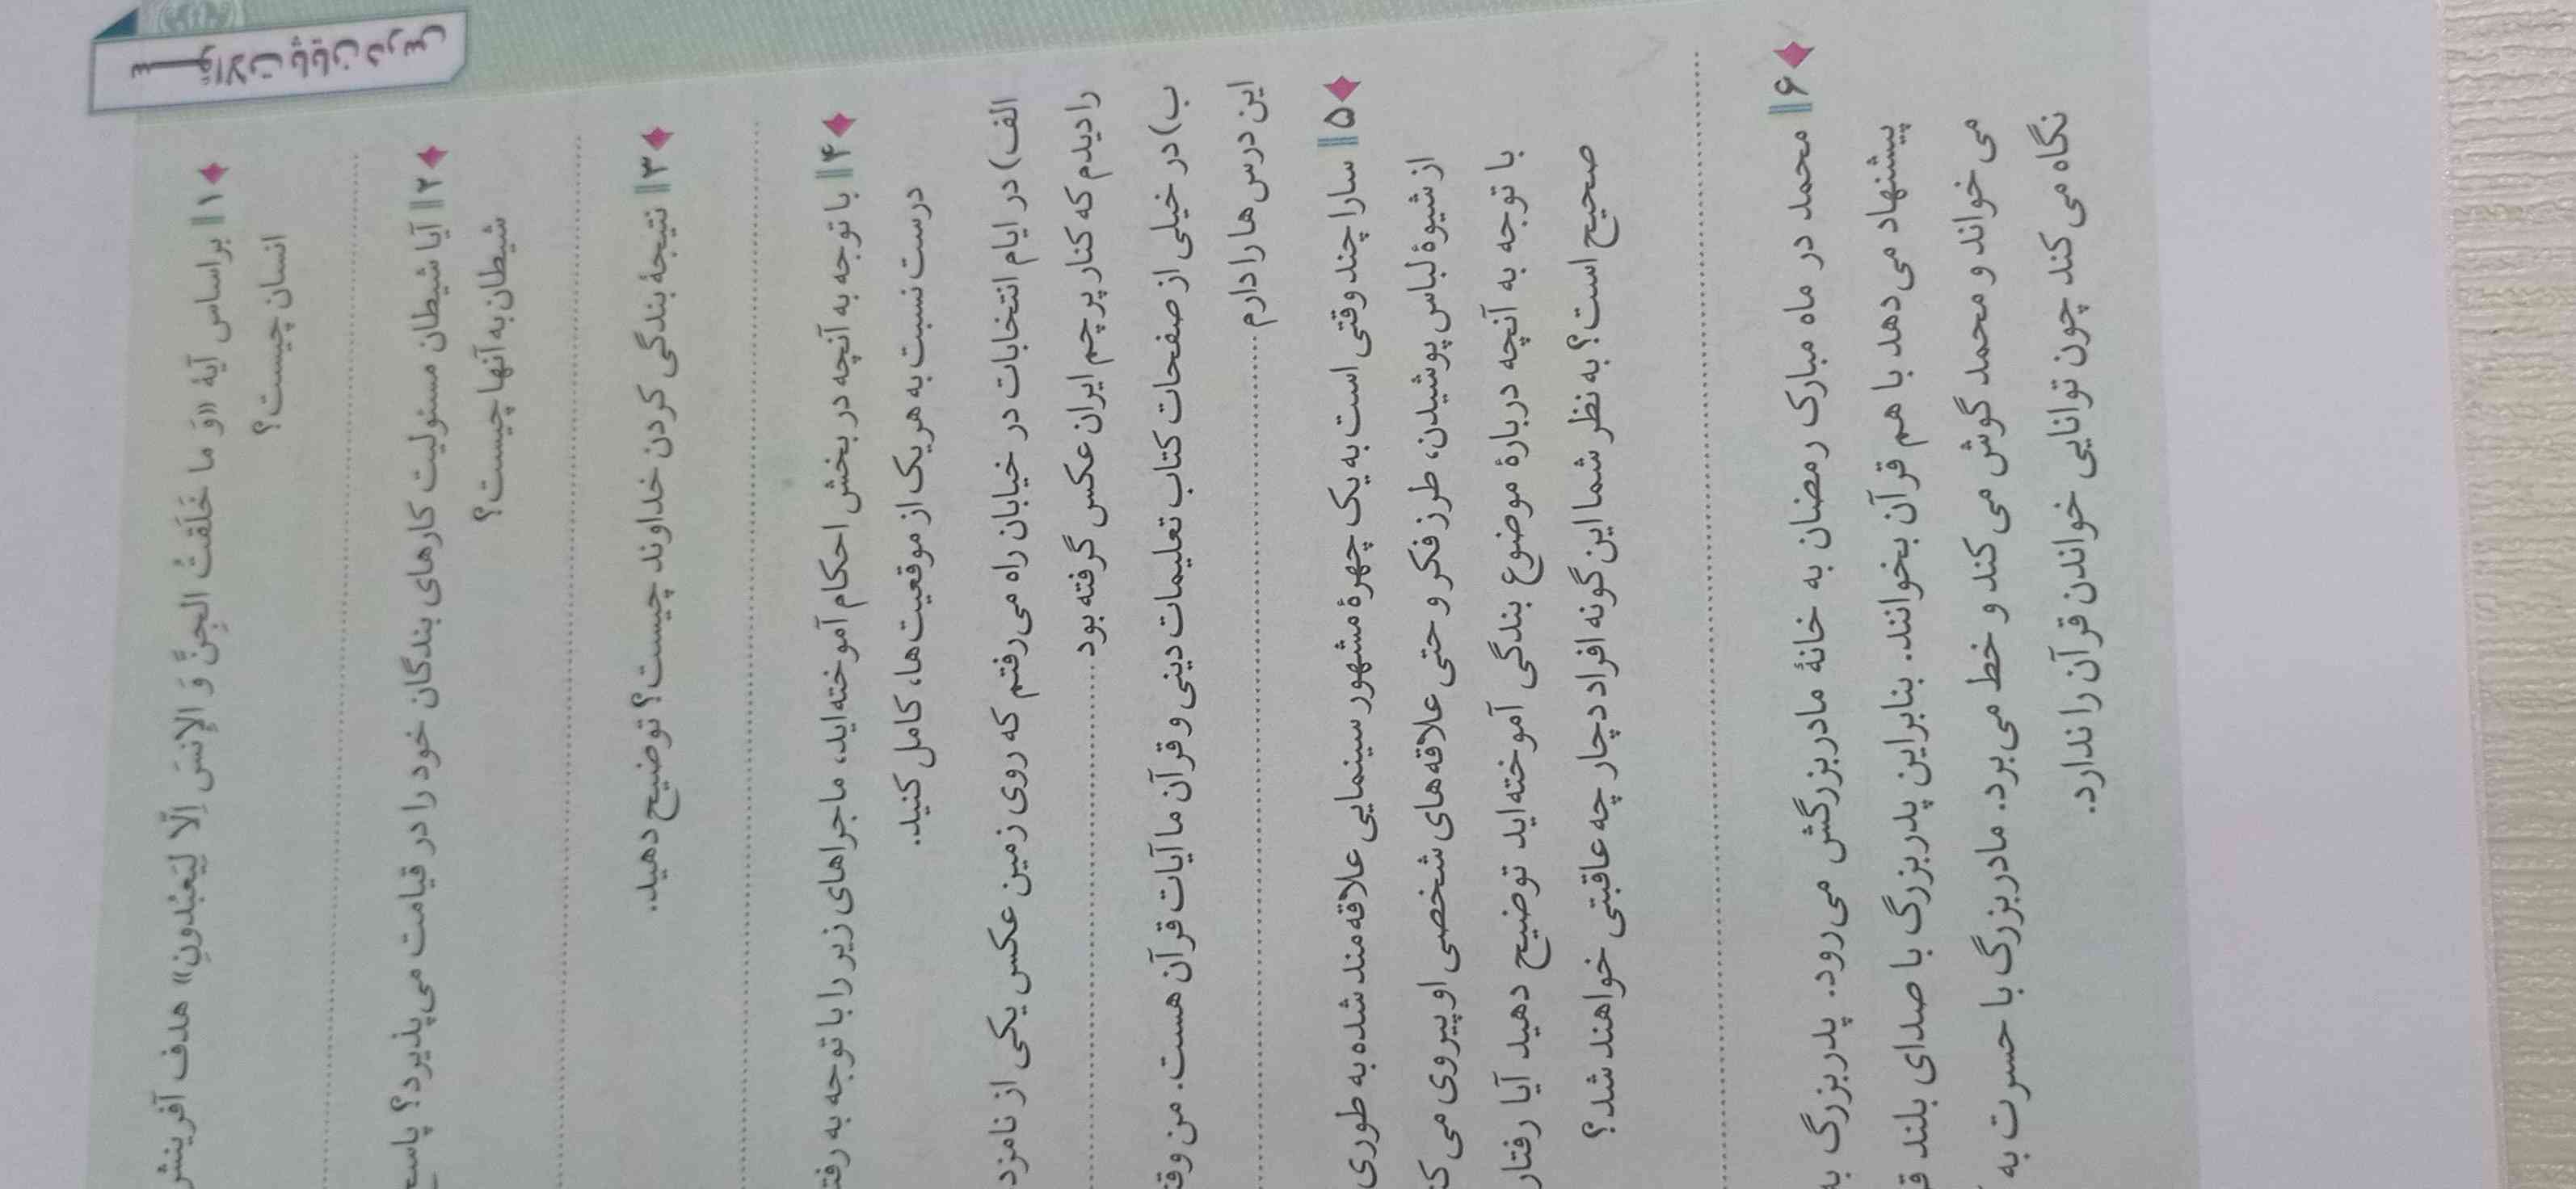 سوالات پایان درس
۱ براساس آیهٔ «وَ ما خَلَقتُ الجِنَّ وَ الإنسَ اِلّا لِیَعبُدونِ» هدف آفرینش
انسان چیست؟
۲ آیا شیطان مسئولیت کارهای بندگان خود را در قیامت می‌پذیرد؟ پاسخ
شیطان به آنها چیست؟
۳ نتیجهٔ بندگی کردن خداوند چیست؟ توضیح دهید.
۴ با توجه به آنچه در بخش احکام آموخته‌اید، ماجراهای زیر را با توجه به
درست نسبت به هریک از موقعیت‌ها، کامل کنید.
الف) در ایام انتخابات در خیابان راه می‌رفتم که روی زمین عکس یکی از
را دیدم که کنار پرچم ایران عکس گرفته بود
ب) در خیلی از صفحات کتاب تعلیمات دینی و قرآن ما آیات قرآن هست. من
این درس‌ها را دارم
۵ سارا چند وقتی است به یک چهرهٔ مشهور سینمایی علاقه‌مند شده به طوری
از شیوهٔ لباس پوشیدن، طرز فکر و حتی علاقه‌های شخصی او پیروی می
با توجه به آنچه دربارهٔ موضوع بندگی آموخته‌اید توضیح دهید آیا رفتار
صحیح است؟ به نظر شما این گونه افراد دچار چه عاقبتی خواهند شد؟
۶ محمد در ماه مبارک رمضان به خانهٔ مادربزرگش می‌رود. پدربزرگ به
پیشنهاد می‌دهد با هم قرآن بخوانند. بنابراین پدربزرگ با صدای بلند
می‌خواند و محمد گوش می‌کند و خط می‌برد. مادربزرگ با حسرت به
نگاه می‌کند چون توانایی خواندن قرآن را ندارد.